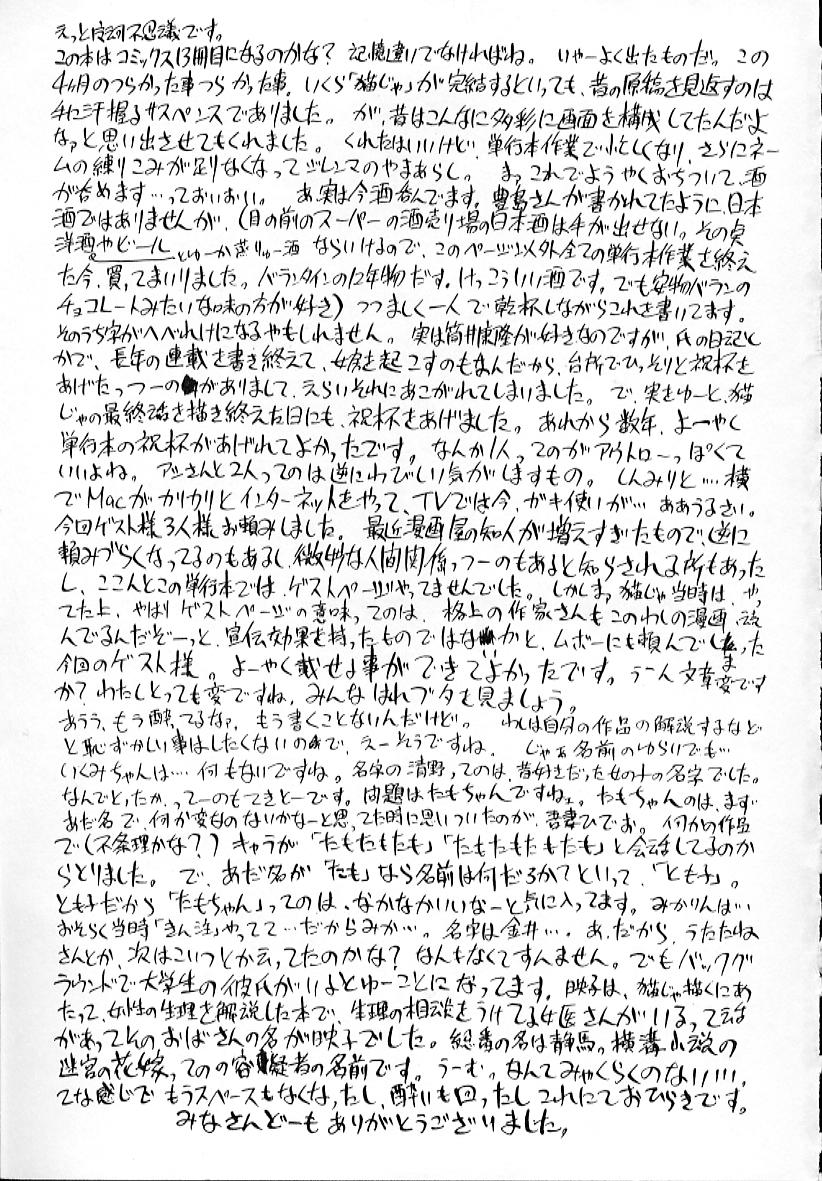 えっと摩訶不思議です。
この本はコミックス13冊目になるのかな？ 記憶違いでなければね。 いやーよく出たものだ。 この
4ヶ月のつらかった事つらかった事。いくら「猫じゃ」が完結するといっても、昔の原稿を見返すのは
手に汗握るサスペンスでありました。 が、昔はこんなに多彩に画面を構成してたんだよ
なァと思い出させてもくれました。 くれたはいいけど、単行本作業で忙しくなり、さらにネー
ムの練りこみが足りなくなってジレンマのやまあらし。 まっこれでようやくおちついて、酒
が呑めます…っておいおい。 あ、実は今酒呑んでます。豊島さんが書かれてたように、日本
酒ではありませんが、(目の前のスーパーの酒売り場の日本酒は手が出せない。その点
洋酒やビールとゆーか蒸りゅー酒ならいけるので、このページ以外全ての単行本作業を終え
た今、買ってまいりました。バランタインの12年物だす。けっこういい酒です。でも安物バランの
チョコレートみたいな味の方が好き) つつましく一人で乾杯しながらこれを書いてます。
そのうち字がへべれけになるやもしれません。 実は筒井康隆が好きなのですが、氏の日記と
かで、長年の連載を書き終えて、女房を起こすのもなんだから、台所でひっそりと祝杯を
あげたっつーのがありまして、えらいそれにあこがれてしまいました。 で、実をゆーと、猫
じゃの最終話を描き終えた日にも、祝杯をあげました。 あれから数年、よーやく
単行本の祝杯があげれてよかったです。 なんか1人ってのがアウトローっぽくて
いいよね。 アシさんと2人ってのは逆にわびしい気がしますもの。 しんみりと…。横
でMacがカリカリとインターネットをやって、TVでは今、ガキ使いが… ああうるさい。
今回ゲスト様3人様、お頼みしました。 最近漫画屋の知人が増えすぎたもので、逆に
頼みづらくなってるのもあるし、微妙な人間関係っつーのもあると知らされる所もあった
し、ここんとこの単行本では、ゲストページやってませんでした。しかしまっ猫じゃ当時は、やっ
てた上、やはりゲストページの意味ってのは、格上の作家さんもこのわしの漫画、読
んでるんだぞーっと、宣伝効果を持ったものではないかと、ムボーにも頼んでしまった
今回のゲスト様。よーやく載せる事ができてよかったです。 うーん文章変です
か？わたしとっても変ですね。みんなはれブタも見ましょう。
あうう、もう酔ってるなァ、もう書くことないんだけど。 わしは自分の作品の解説するなど
と恥ずかしい事はしたくないので、えーそうですね。 じゃぁ名前のゆらいでも…
いくみちゃんは… 何もないですね。名字の清野ってのは、昔好きだった女の子の名字でした。
なんでとったか、ってーのもてきとーです。問題はたもちゃんですねェ。たもちゃんのは、まず
あだ名で、何か変なのないかなーと思ってた時に思いついたのが、吾妻ひでお。何かの作品
で(不条理かな？) キャラが「たもたもたも」「たもたもたもたも」と会話してるのか
らとりました。 で、あだ名が「たも」なら名前は何だろかてといって、「とも子」。
とも子だから「たもちゃん」ってのは、なかなかいいなーと気に入ってます。みかりんは…
おそらく当時「きん注」やってて…だからみか…。名字は金井…。あ、だから、うたたね
さんとか、次はこいつとか云ってたのかな？なんもなくてすんません。でもバックグ
ラウンドで大学生の彼氏がいるとゆーことになってます。映子は、猫じゃ描くにあ
たって、女性の生理を解説した本で、生理の相談をうけてる女医さんがいるって話
があってそのおばさんの名が映子でした。総番の名は静馬。横溝小説の
迷宮の花嫁、ってのの容疑者の名前です。うーむ。なんてみゃくらくのない!!!、
てな感じで もうスペースもなくなったし、酔いも回ったし これにておひらきです。
みなさんどーも ありがとうございました。